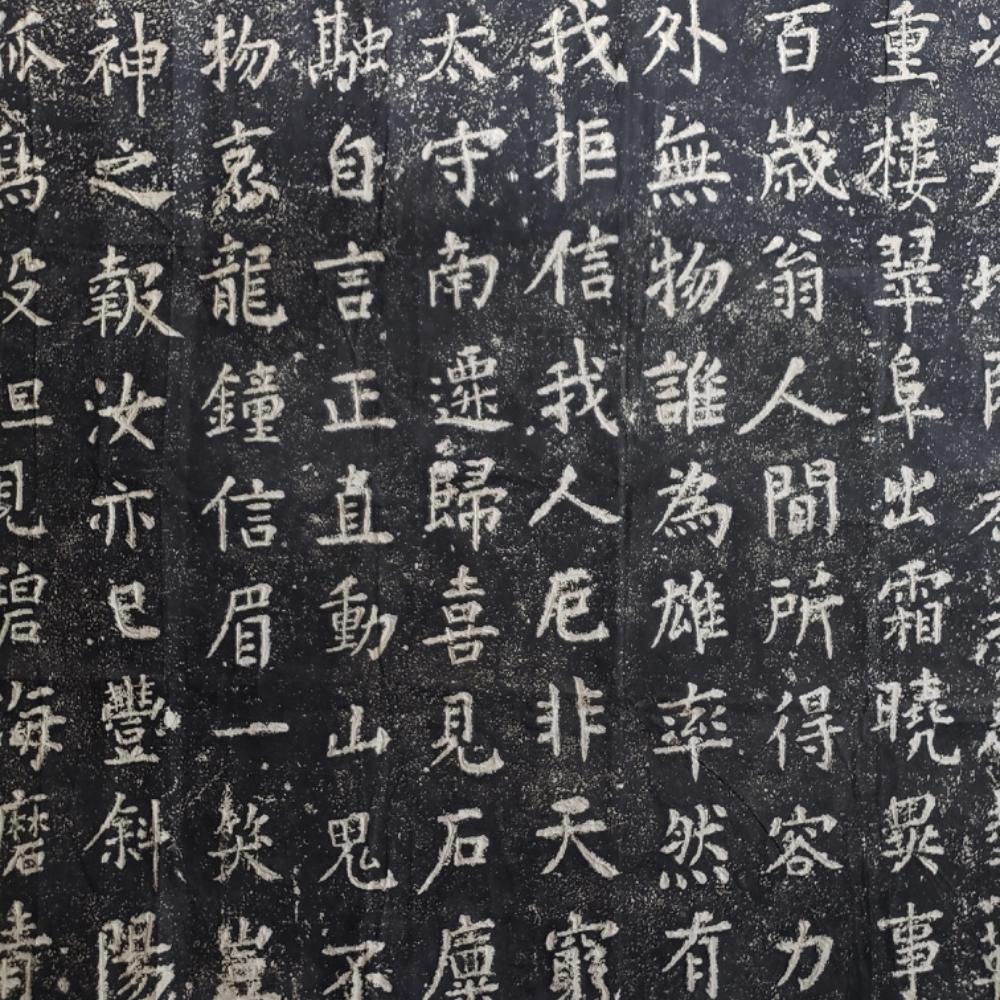 重樓翠阜出霜曉異事
百歲翁人間所得容力
外無物誰為雄率然有
我拒信我人厄非天窮
太守南遷歸喜見石廩
融自言正直動山鬼不
物哀龍鐘信眉一笑豈
神之報汝亦已豐斜陽
孤鳥沒但見碧海磨青